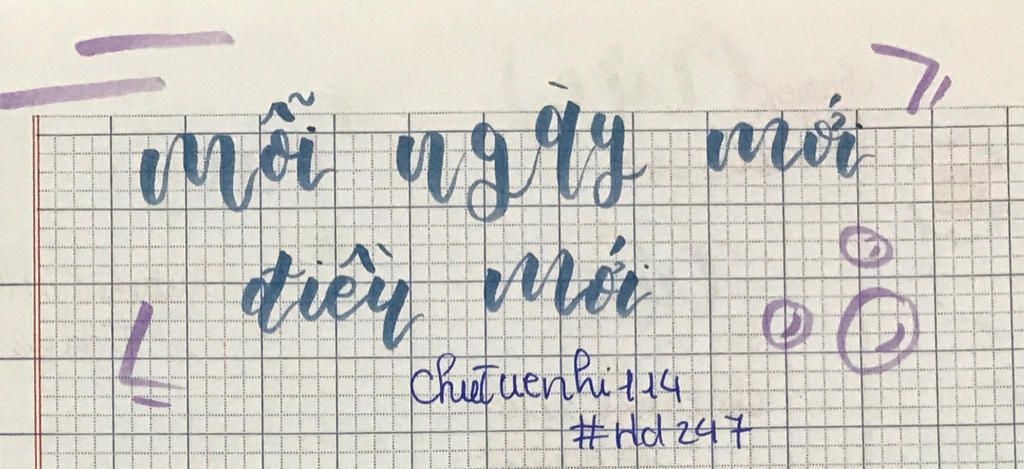 mỗi ngày mới
điều mới
chuetuenhi114
#Hd247